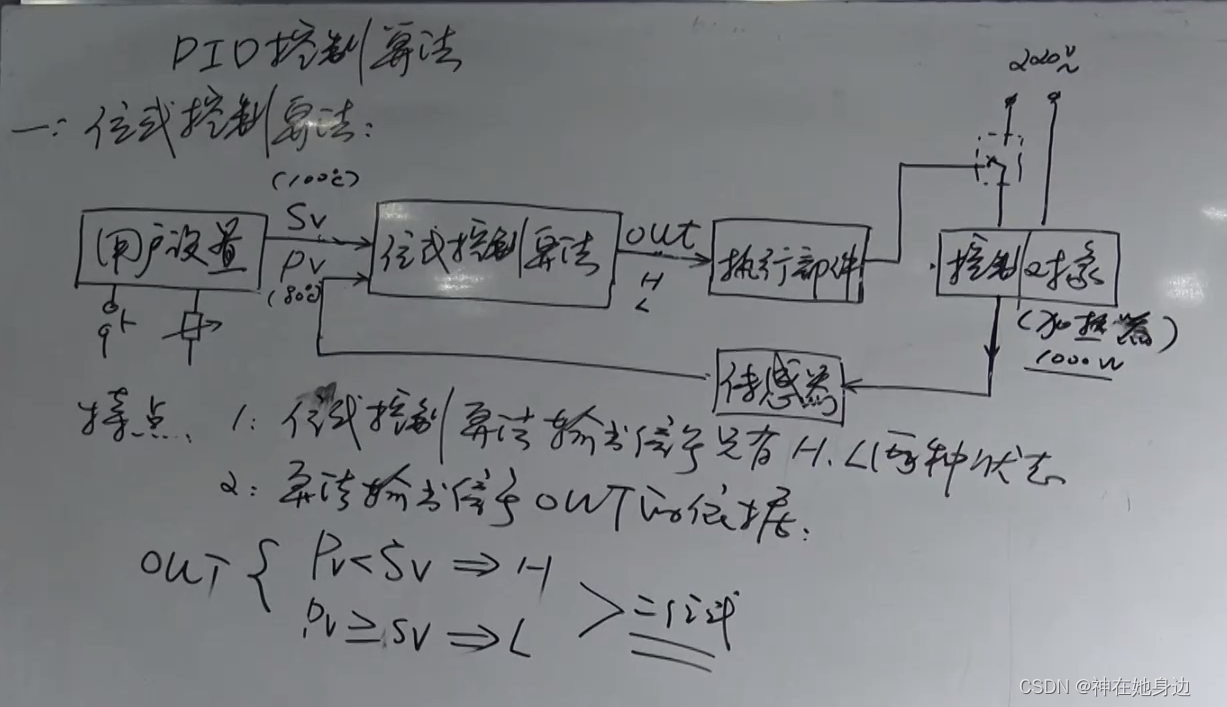 PID控制算法
一：位式控制算法：
220V~
(100℃)
SV
PV
(80℃)
用户设置
位式控制算法
OUT
H
L
执行部件
控制对象
(加热器)
1000W
传感器
特点、1：位式控制算法输出信号只有H.L两种状态
2：算法输出信号OUT的依据：
OUT { PV<SV ⇒ H
PV≥SV ⇒ L
> 二位式
CSDN @神在她身边